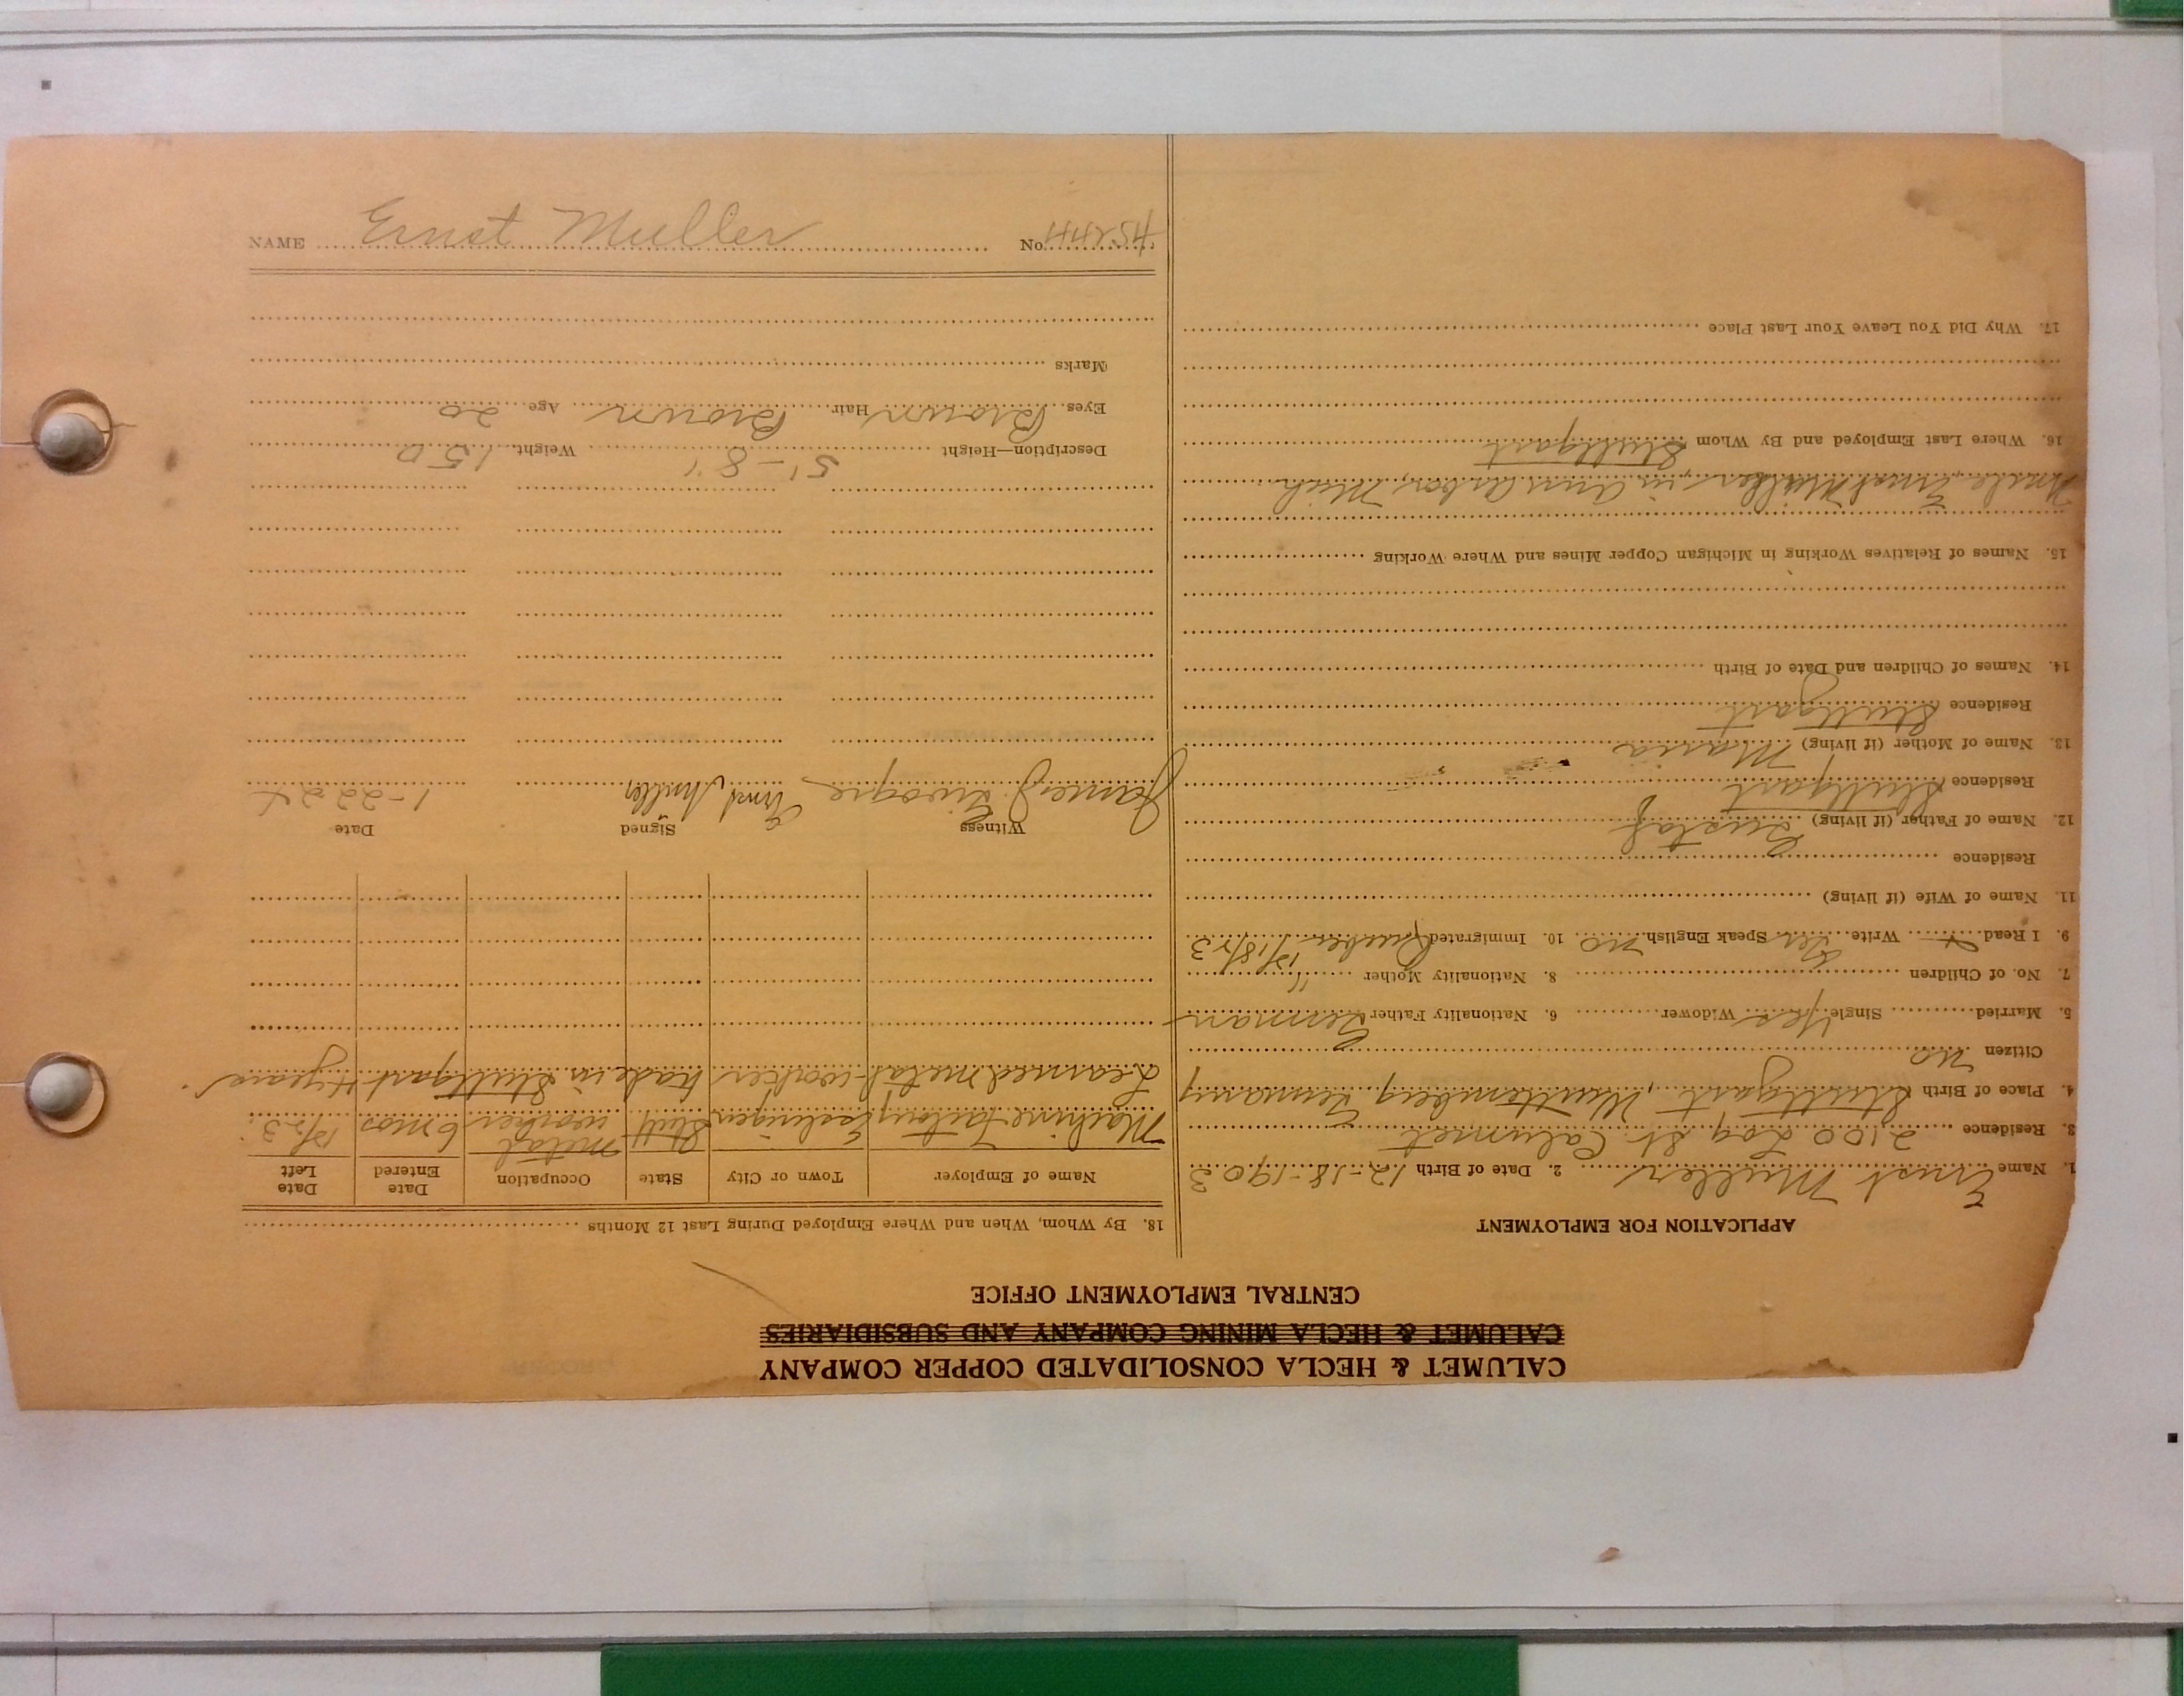 CALUMET & HECLA CONSOLIDATED COPPER COMPANY
CALUMET & HECLA MINING COMPANY AND SUBSIDIARIES
CENTRAL EMPLOYMENT OFFICE
APPLICATION FOR EMPLOYMENT
1. Name Ernst Muller 2. Date of Birth 12-18-1903
3. Residence 2100 Log St. Calumet
4. Place of Birth Stuttgart, Wurttemberg, Germany
Citizen no
5. Married Single Yes Widower 6. Nationality Father German
7. No. of Children 8. Nationality Mother "
9. I Read Write Ger Speak English no 10. Immigrated 12/18/23
11. Name of Wife (if living)
Residence
12. Name of Father (if living) Gustaf
Residence Stuttgart
13. Name of Mother (if living) Maria
Residence Stuttgart
14. Names of Children and Date of Birth
15. Names of Relatives Working in Michigan Copper Mines and Where Working
Uncle, Ernst Muller, in Ann Arbor, Mich
16. Where Last Employed and By Whom Stuttgart
17. Why Did You Leave Your Last Place
18. By Whom, When and Where Employed During Last 12 Months
Name of Employer Town or City State Occupation Date Entered Date Left
Machine Factory Esslingen Stutt metal worker 6 mos 12/23
Learned metal-worker trade in Stuttgart 4 years
Witness Signed Date
James Ernst Muller 1-22 24
Description—Height 5'-8" Weight 150
Eyes Brown Hair Brown Age 20
Marks
NAME Ernst Muller No.